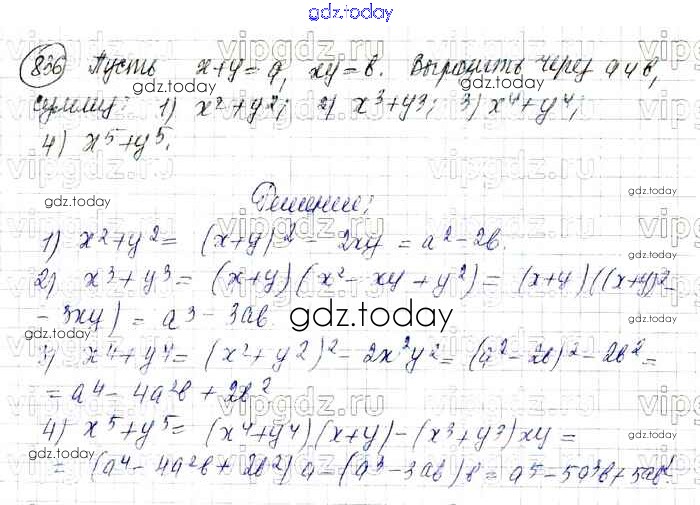 gdz.today
836 Пусть x+y=a, xy=b. Выразить через a и b,
сумму: 1) x²+y²; 2) x³+y³; 3) x⁴+y⁴;
4) x⁵+y⁵.
Решение:
1) x²+y² = (x+y)² - 2xy = a²-2b.
2) x³+y³ = (x+y)(x²-xy+y²) = (x+y)((x+y)²-
-3xy) = a³-3ab.
3) x⁴+y⁴ = (x²+y²)²-2x²y² = (a²-2b)²-2b² =
= a⁴-4a²b+2b²
4) x⁵+y⁵ = (x⁴+y⁴)(x+y)-(x³+y³)xy =
= (a⁴-4a²b+2b²)a-(a³-3ab)b = a⁵-5a³b+5ab².
gdz.today